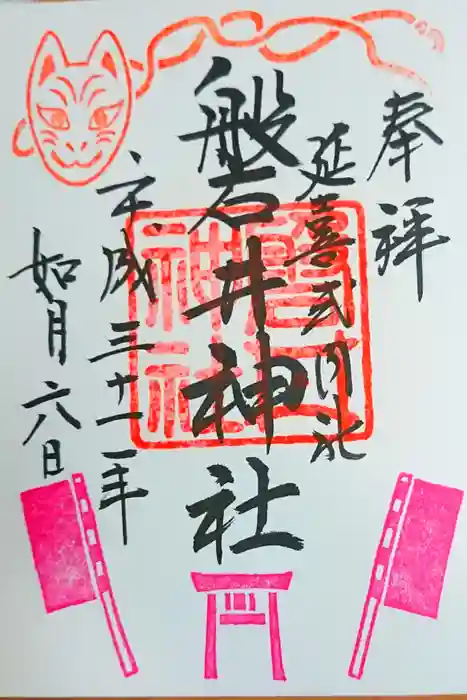 奉拝
延喜式内社
盤石井神社
平成三十一年
如月六日